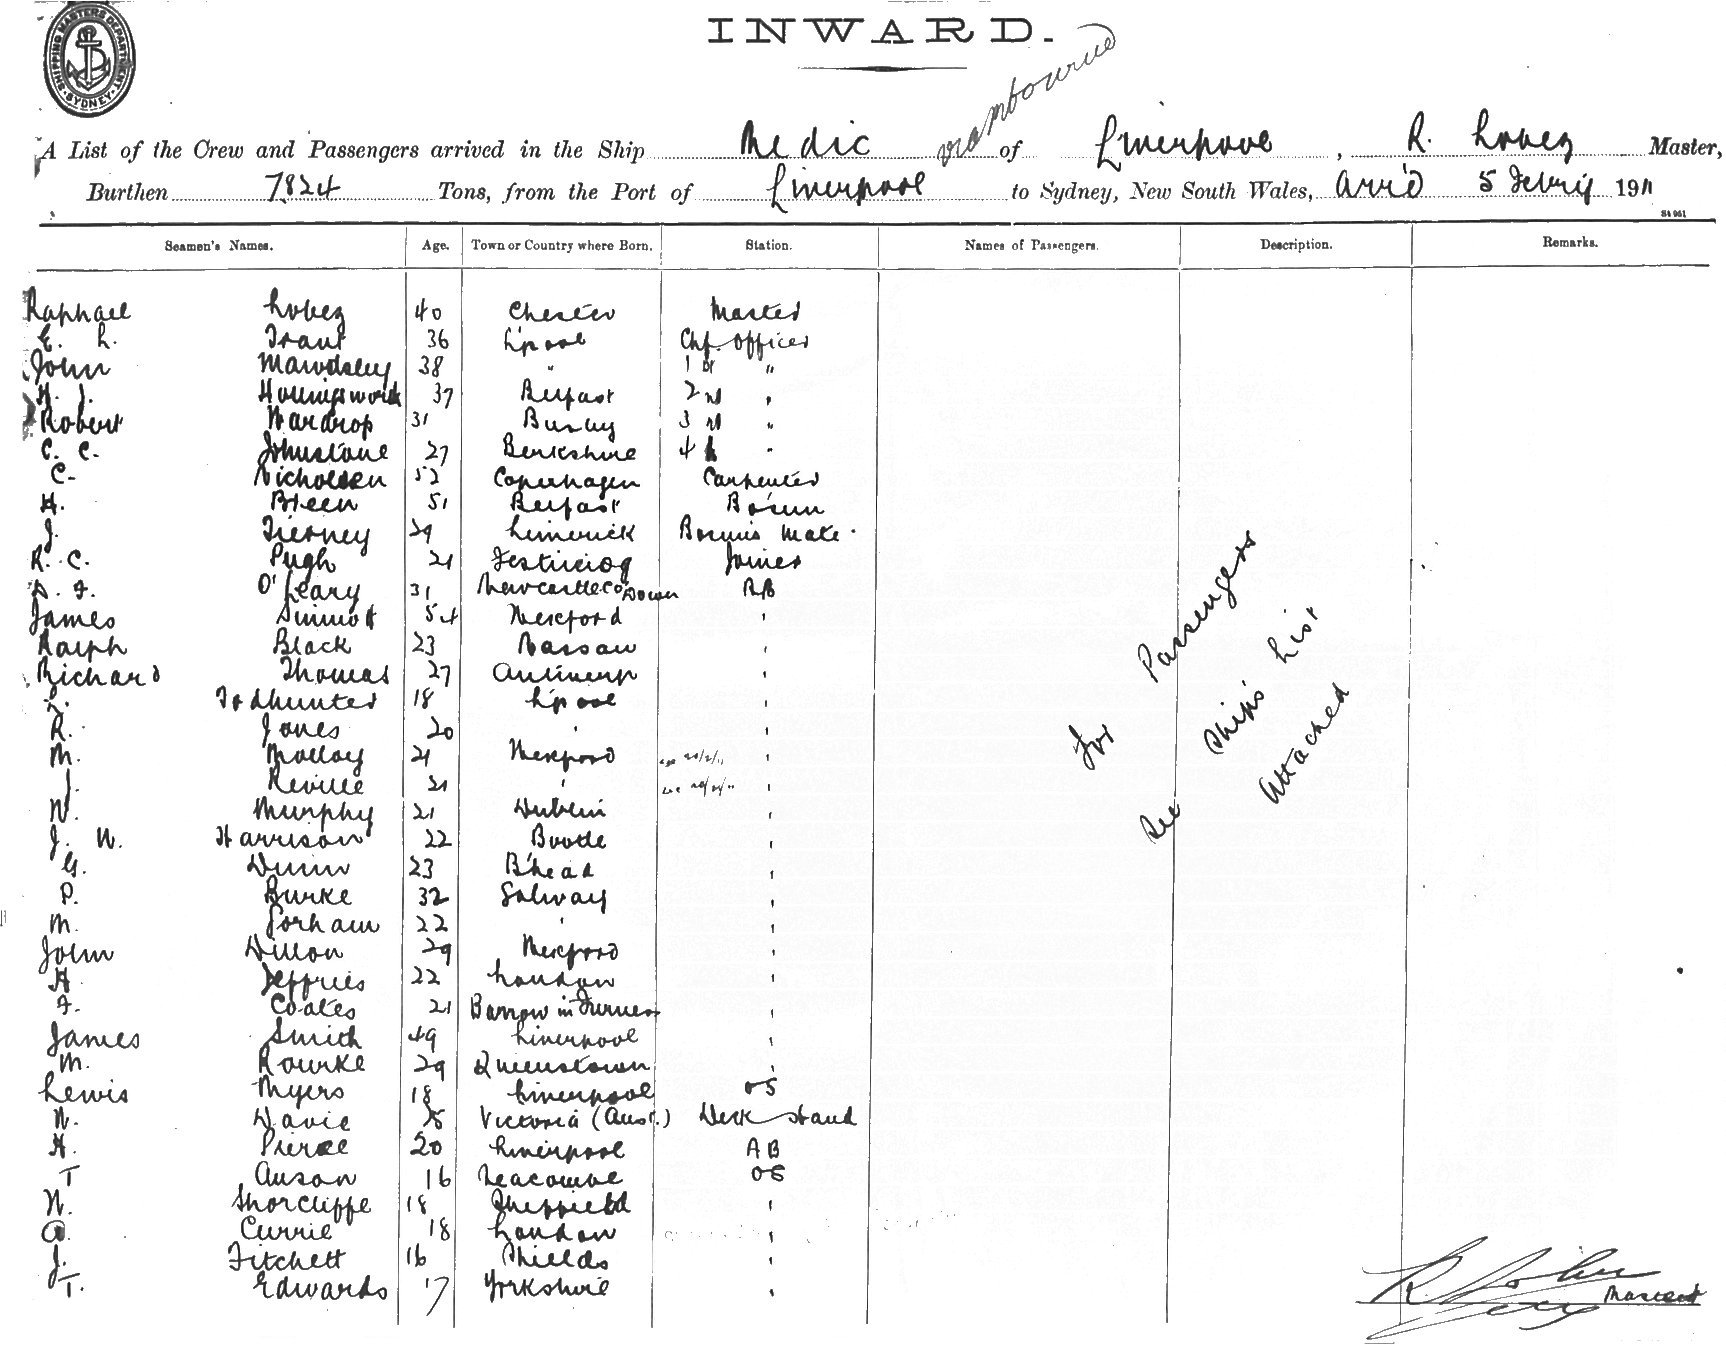 SHIPPING MASTERS DEPARTMENT SYDNEY
INWARD.
via Melbourne
A List of the Crew and Passengers arrived in the Ship Medic of Liverpool, R. Lobez Master,
Burthen 7824 Tons, from the Port of Liverpool to Sydney, New South Wales, Arr'd 5 Febr'y 1911
Seamen's Names. Age. Town or Country where Born. Station. Names of Passengers. Description. Remarks.
Raphael Lobez 40 Chester Master
E. L. Trant 36 L'pool Chf. Officer
John Mawdsley 38 " 1st "
H. J. Hollingsworth 37 Belfast 2nd "
Robert Wardrop 31 Busby 3rd "
C. C. Johnstone 27 Berkshire 4th "
C. Nicholsen 52 Copenhagen Carpenter
H. Breen 51 Belfast Bo'sun
J. Tierney 29 Limerick Bosun's Mate
R. C. Pugh 21 Festiniog Joiner
D. F. O'Leary 31 Newcastle Co Down AB
James Sinnott 54 Wexford "
Ralph Black 23 Nassau "
Richard Thomas 27 Antwerp "
Todhunter 18 L'pool "
R. Jones 20 " "
M. Molloy 21 Wexford "
J. Reville 21 " "
W. Murphy 21 Dublin "
J. W. Harrison 22 Bootle "
G. Dunn 23 B'head "
P. Burke 32 Galway "
M. Gorham 22 " "
John Dillon 29 Wexford "
H. Jeffries 22 London "
F. Coates 21 Barrow in Furness "
James Smith 49 Liverpool "
M. Rourke 29 Queenstown "
Lewis Myers 18 Liverpool OS
W. Davie 25 Victoria (Aust.) Deck Hand
H. Pierce 20 Liverpool AB
T Anson 16 Seacombe OS
W. Shorcliffe 18 Sheffield "
A. Currie 18 London "
J. Fitchett 16 Shields "
T. Edwards 17 Yorkshire "
For Passengers
see Ship's List
attached
R. Lobez
Master